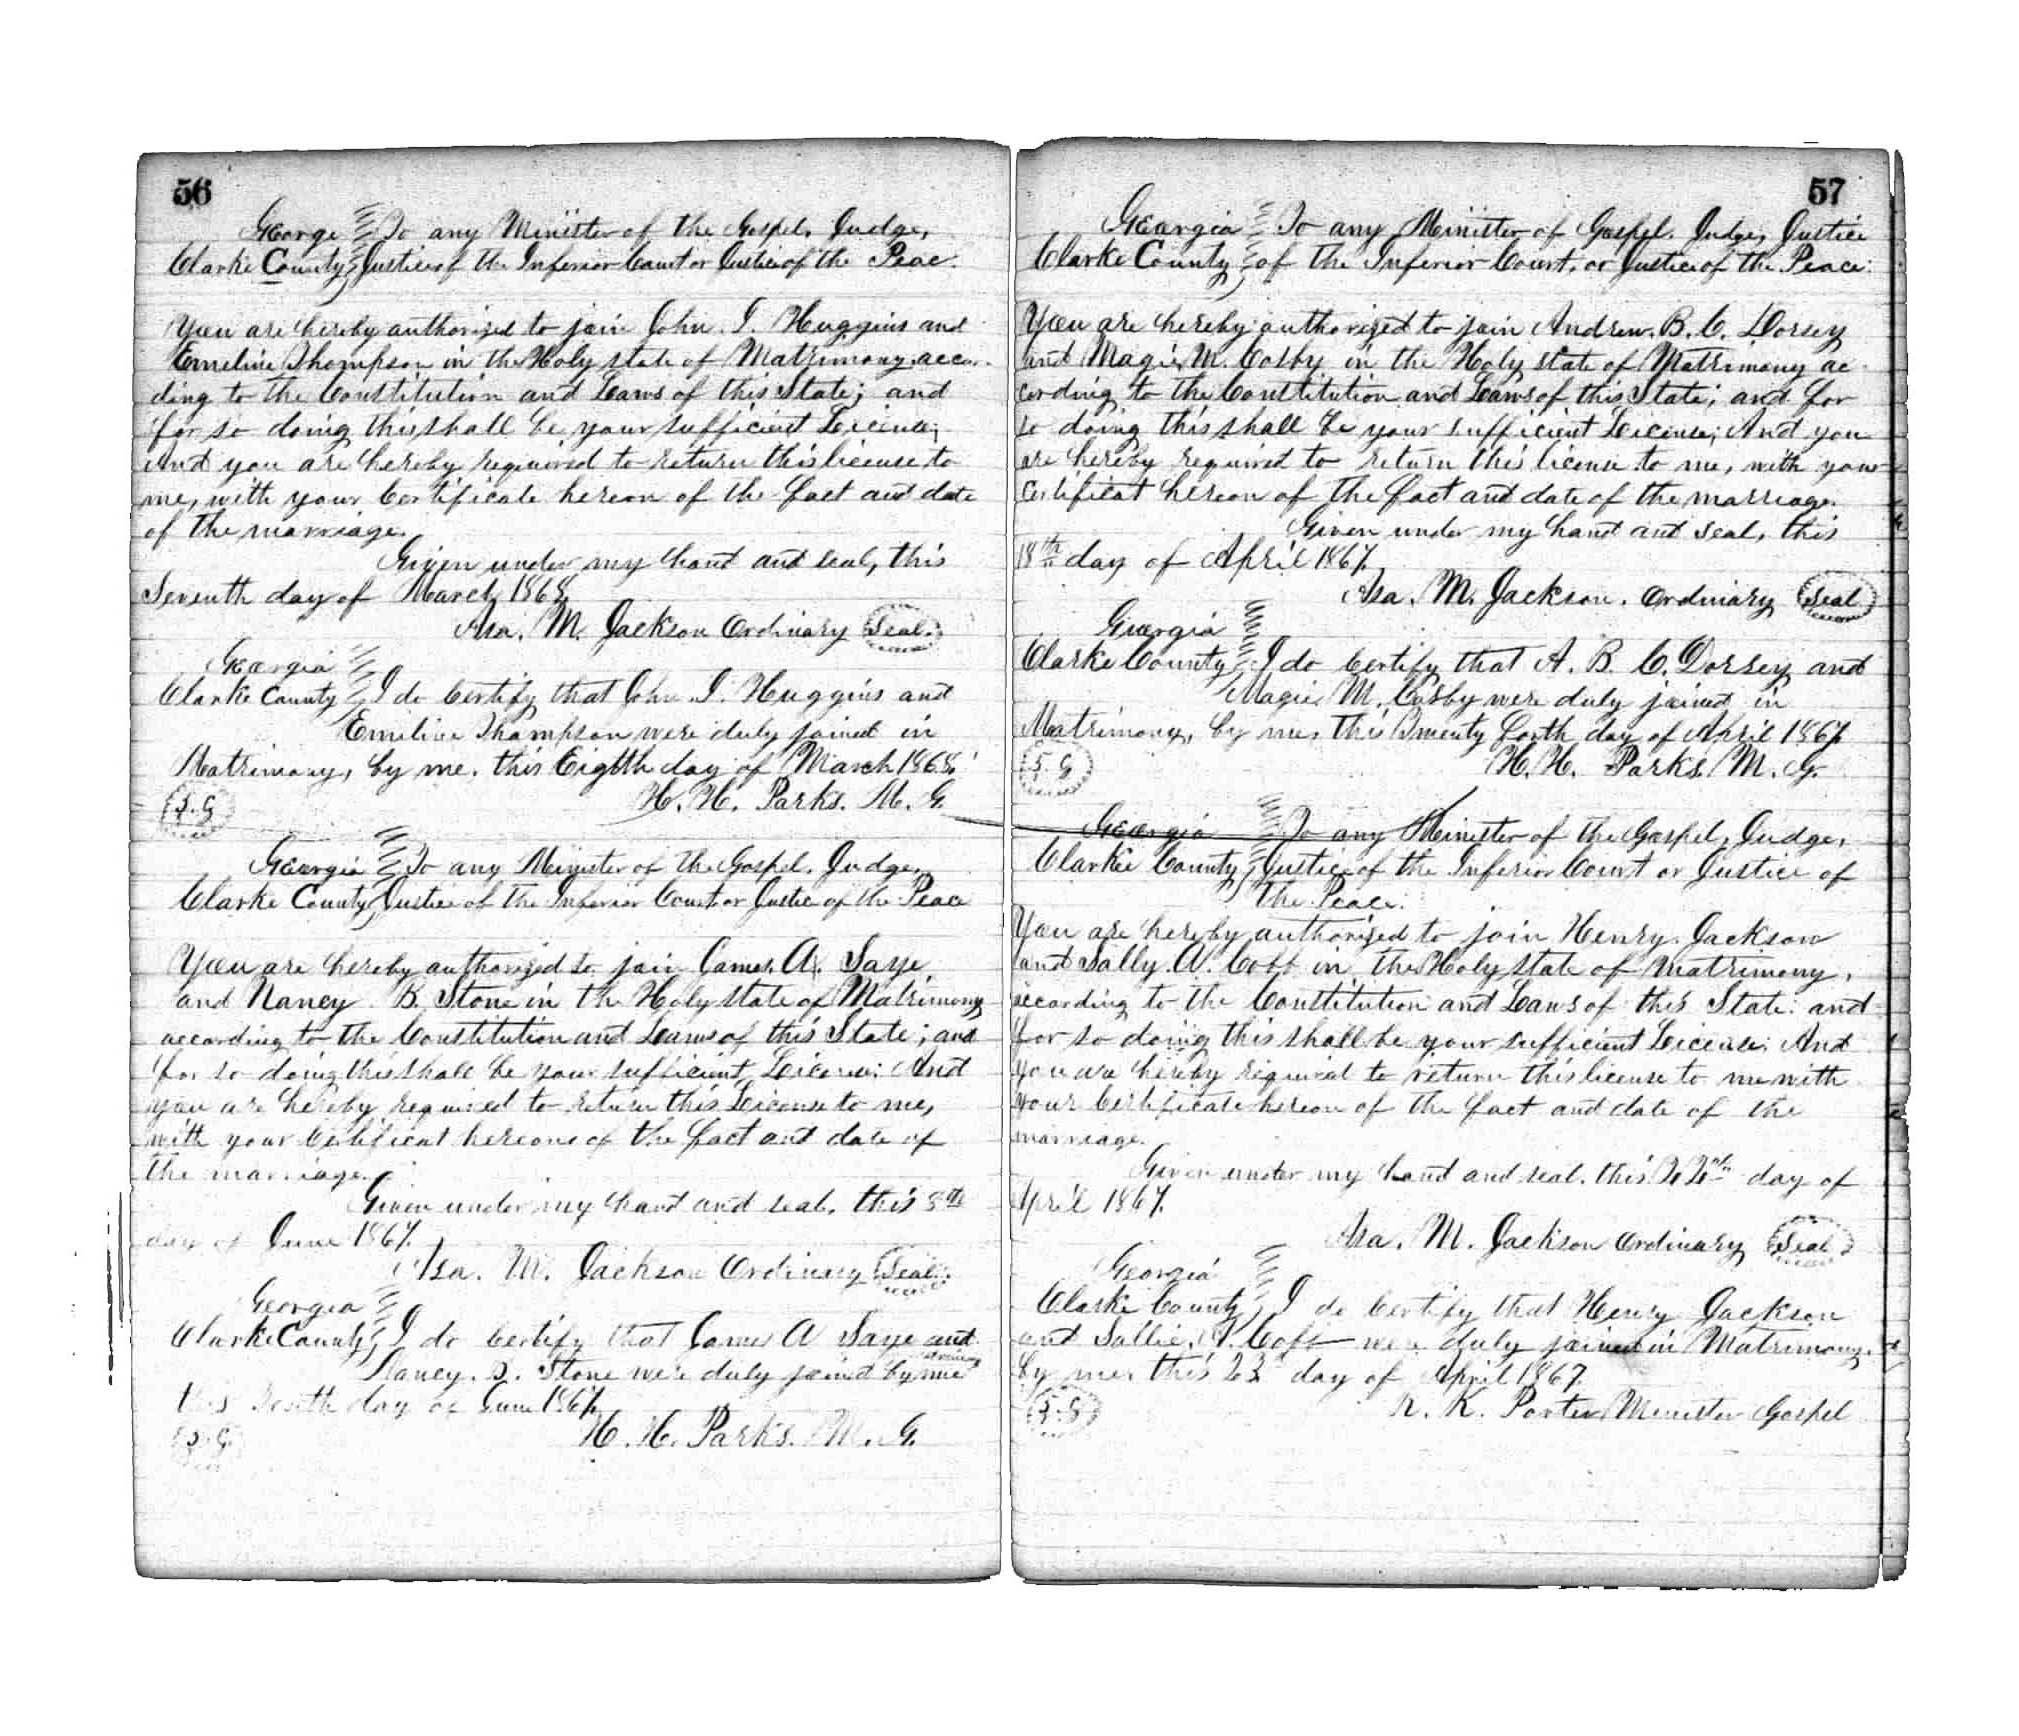 56
George To any Minister of the Gospel, Judge,
Clarke County Justice of the Inferior Court or Justice of the Peac.
You are hereby authorized to join John. I. Huggins and
Emeline Thompson in the Holy state of Matrimony, accor-
ding to the Constitution and Laws of this State; and
for so doing this shall be your sufficient License;
And you are hereby required to return this license to
me, with your Certificate hereon of the fact and date
of the marriage.
Given under my hand and seal, this
Seventh day of March 1868,
Asa. M. Jackson Ordinary Seal.
Georgia
Clarke County I do Certify that John. I. Huggins and
Emiline Thompson were duly joined in
Matrimony, by me, this Eighth day of March 1868.
H. H. Parks. M. G.
Georgia To any Minister of the Gospel, Judge,
Clarke County Justice of the Inferior Court or Justice of the Peace
You are hereby authorized to join James. A. Saye,
and Nancy B. Stone in the Holy state of Matrimony
according to the Constitution and Laws of this State; and
for so doing this shall be your sufficient License: And
you are hereby required to return this License to me,
with your Certificat hereon of the fact and date of
the marriage.
Given under my hand and seal, this 8th
day of June 1867.
Asa. M. Jackson Ordinary Seal.
Georgia
Clarke County, I do Certify that James A Saye and
Nancy. Stone were duly joined by me
this day of June 1867,
H. H. Parks. M. G.
57
Georgia To any Minister of Gospel. Judge, Justice
Clarke County of the Inferior Court, or Justice of the Peace.
You are hereby authorized to join Andrew. B. C. Dorsey
and Magie, M. Cosby in the Holy state of Matrimony ac
cording to the Constitution and Laws of this State; and for
so doing this shall be your sufficient License; And you
are hereby required to return this license to me, with your
Certificat hereon of the fact and date of the marriage.
Given under my hand and seal, this
18th day of April 1867,
Asa. M. Jackson. Ordinary Seal
Georgia
Clarke County I do Certify that A. B. C. Dorsey and
Magie M. Cosby were duly joined in
Matrimony, by me, this Twenty forth day of April 1867,
H. H. Parks. M. G.
Georgia To any Minister of the Gospel, Judge,
Clarke County, Justice of the Inferior Court or Justice of
the Peace.
You are hereby authorized to join Henry. Jackson
and Sally. A. Cobb in the Holy state of matrimony,
according to the Constitution and Laws of this State: and
for so doing this shall be your sufficient License: And
you are hereby required to return this license to me with
your Certificate hereon of the fact and date of the
marriage.
Given under my hand and seal. this 22nd day of
April 1867.
Asa. M. Jackson Ordinary Seal
Georgia
Clarke County, I do Certify that Henry Jackson
and Sallie. A. Cobb were duly joined in Matrimony,
by me, this 23d day of April 1867.
R. K. Porter Minister Gospel